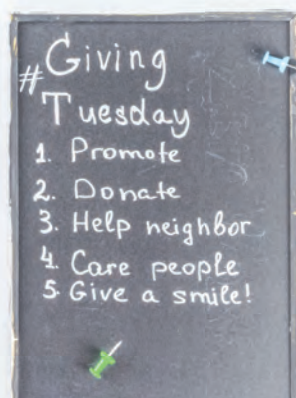 #Giving
Tuesday
1. Promote
2. Donate
3. Help neighbor
4. Care people
5. Give a smile!